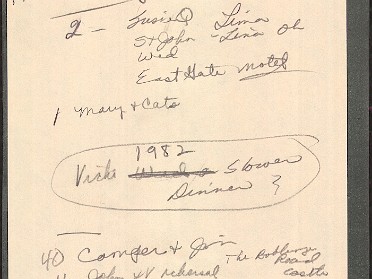 2 - Susie Q Lima
St John - Lima Oh
Wed
East Gate Motel
1 Mary & Cats
1982
Vicki Shower
Dinner ?
40 Comger & Jim
John rehersal The
Road
Castle